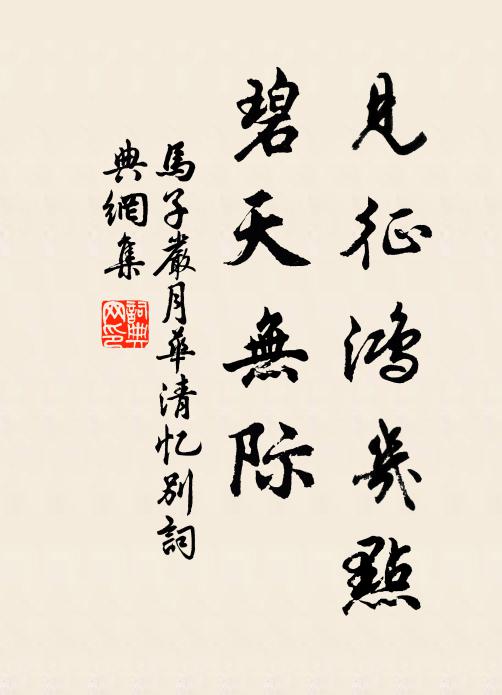 見征鴻幾點
碧天無际
馬子嚴月華清忆别詞
典網集
詞典网印